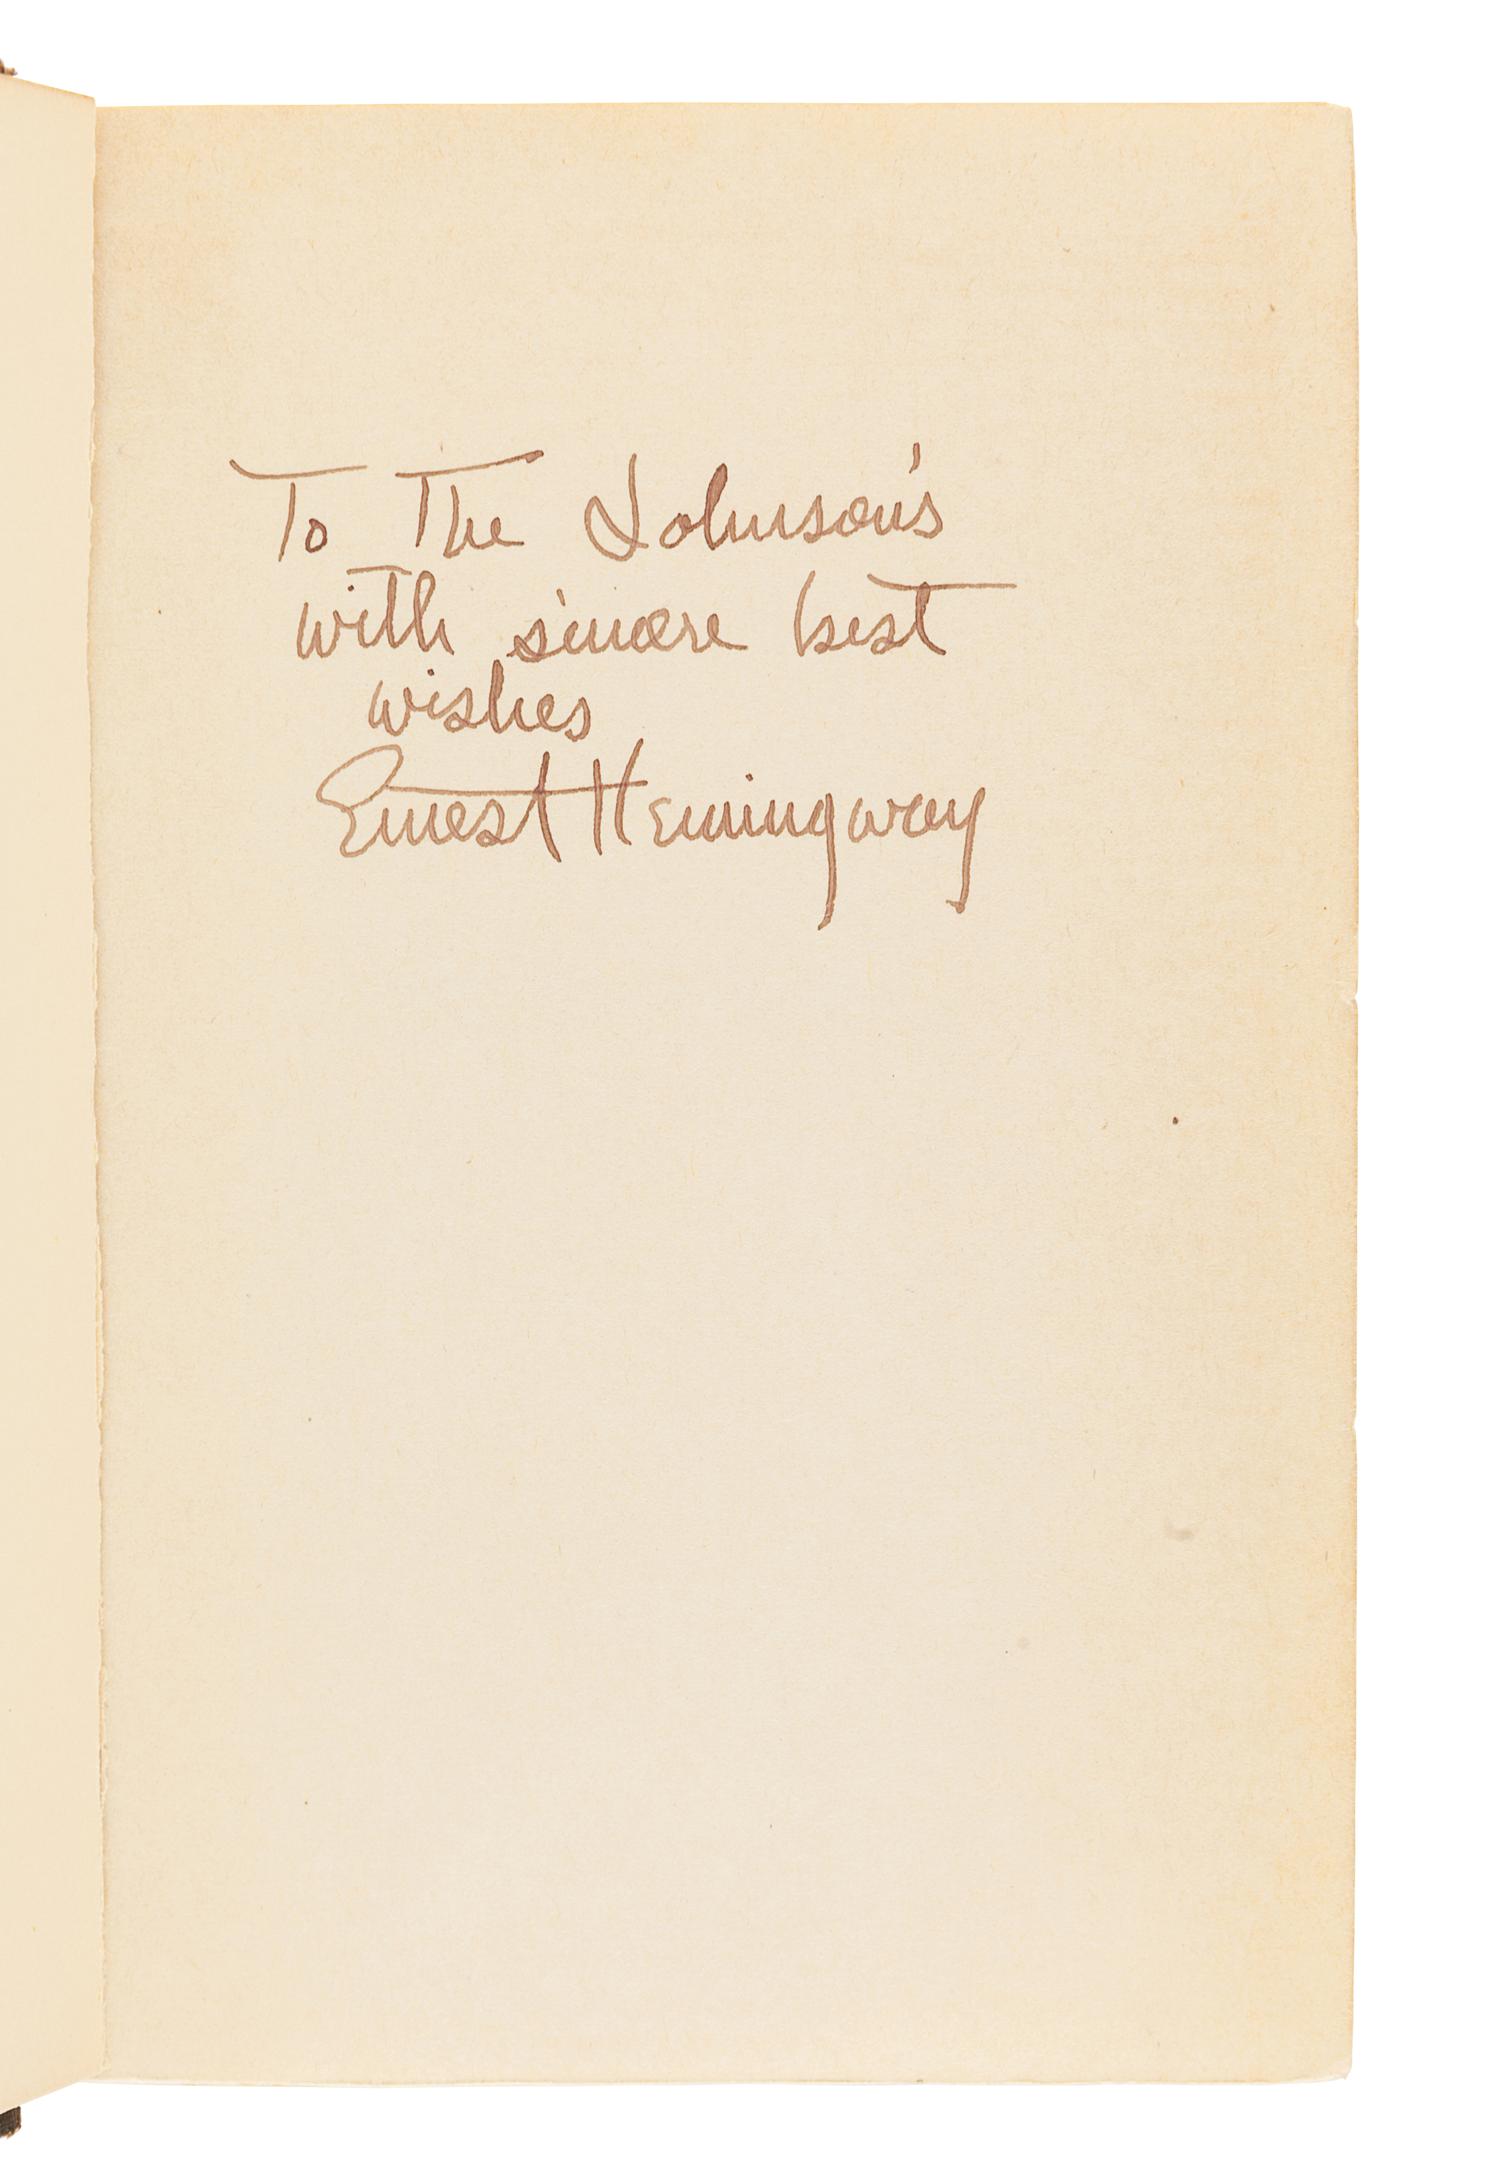 To The Johnson's
with sincere best
wishes
Ernest Hemingway